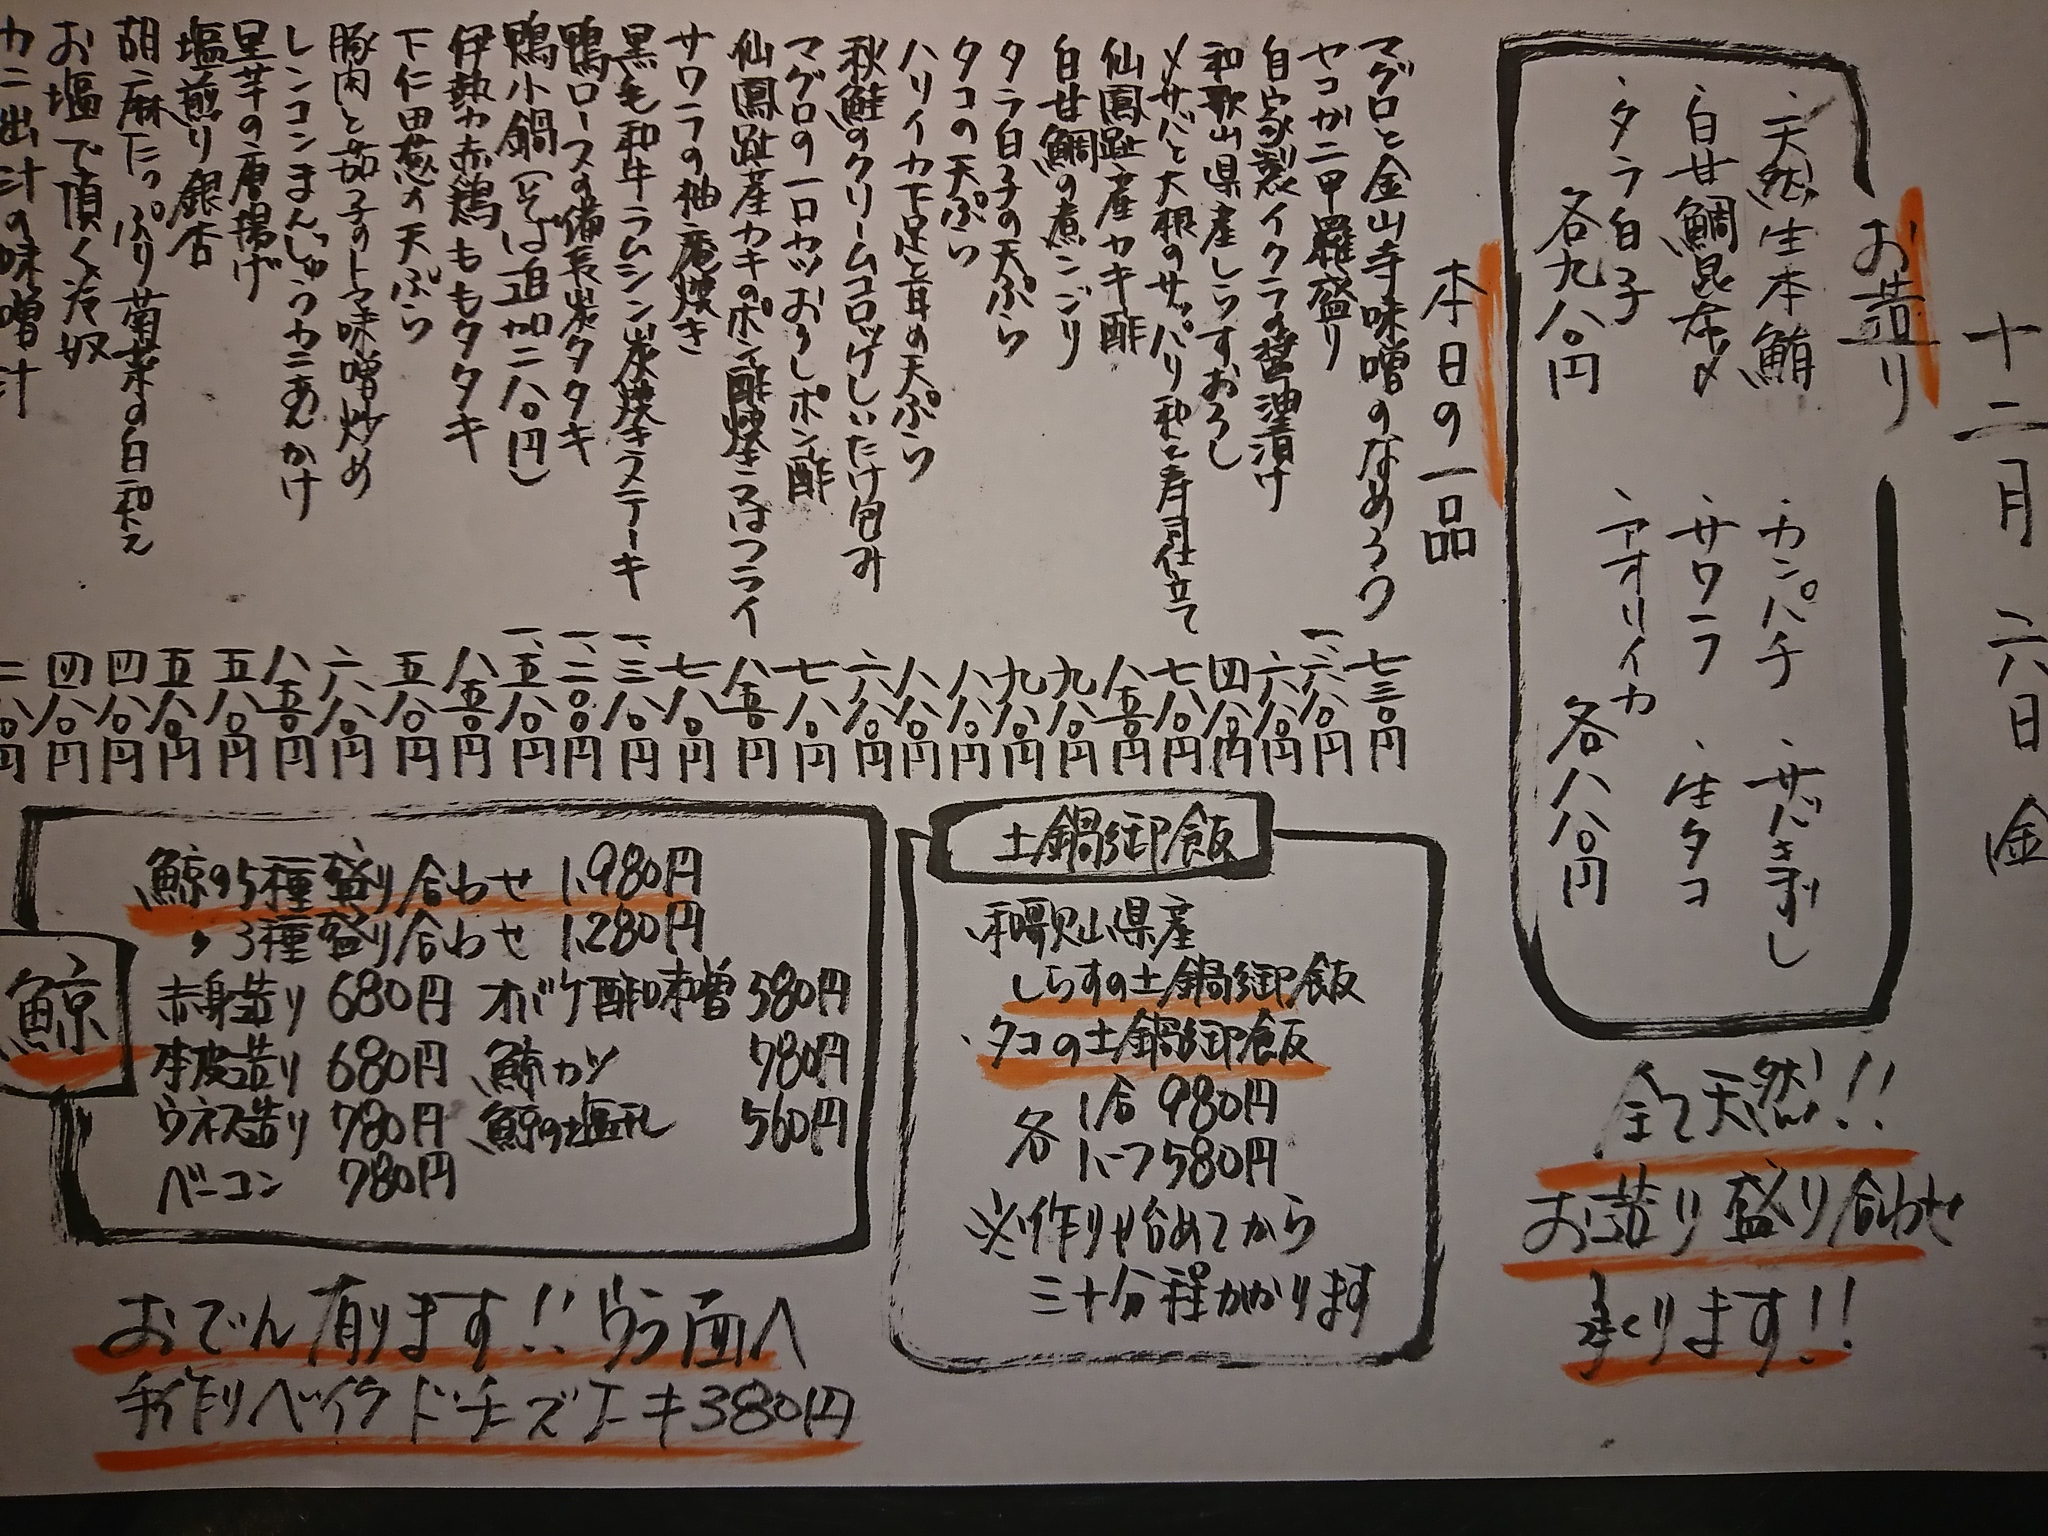 十二月 六日 金
お造り
・天然生本鮪
・白甘鯛昆布〆
・タラ白子
各九八〇円
・カンパチ
・サバきずし
・サワラ
・生タコ
・アオリイカ
各八八〇円
全て天然!!
お造り盛り合わせ
承ります!!
本日の一品
マグロと金山寺味噌のなめろう 七三〇円
セコガニ甲羅盛り 一、六八〇円
自家製イクラの醤油漬け 六八〇円
和歌山県産しらすおろし 四八〇円
〆サバと大根のサッパリ和え寿司仕立て 七八〇円
仙鳳趾産カキ酢 八五〇円
白甘鯛の煮こごり 九八〇円
タラ白子の天ぷら 九八〇円
タコの天ぷら 八八〇円
ハリイカ下足と耳の天ぷら 八八〇円
秋鮭のクリームコロッケしいたけ包み 六八〇円
マグロの一口カツおろしポン酢 七八〇円
仙鳳趾産カキのポン酢焼き又はフライ 八五〇円
サワラの柚庵焼き 七八〇円
黒毛和牛ラムシン炭焼きステーキ 一、三八〇円
鴨ロースの備長炭タタキ 一、二〇〇円
鴨小鍋(そば追加二八〇円) 一、五八〇円
伊勢赤鶏ももタタキ 八五〇円
下仁田葱の天ぷら 五八〇円
豚肉と茄子のトマト味噌炒め 六八〇円
レンコンまんじゅうカニあんかけ 八五〇円
里芋の唐揚げ 五八〇円
塩煎り銀杏 五八〇円
胡麻たっぷり菊菜の白和え 四八〇円
お塩で頂く冷奴 四八〇円
カニ出汁の味噌汁 二八〇円
土鍋御飯
和歌山県産
しらすの土鍋御飯
・タコの土鍋御飯
各 1合 980円
1.5 1,580円
※作り始めてから
三十分程かかります
鯨
鯨の5種盛り合わせ 1,980円
〃 3種盛り合わせ 1,280円
赤身造り 680円 オバケ酢味噌 580円
本皮造り 680円 鯨カツ 780円
ウネス造り 780円 鯨の塩乳 560円
ベーコン 780円
おでん有ります!!ウラ面へ
手作りベイクドチーズケーキ380円